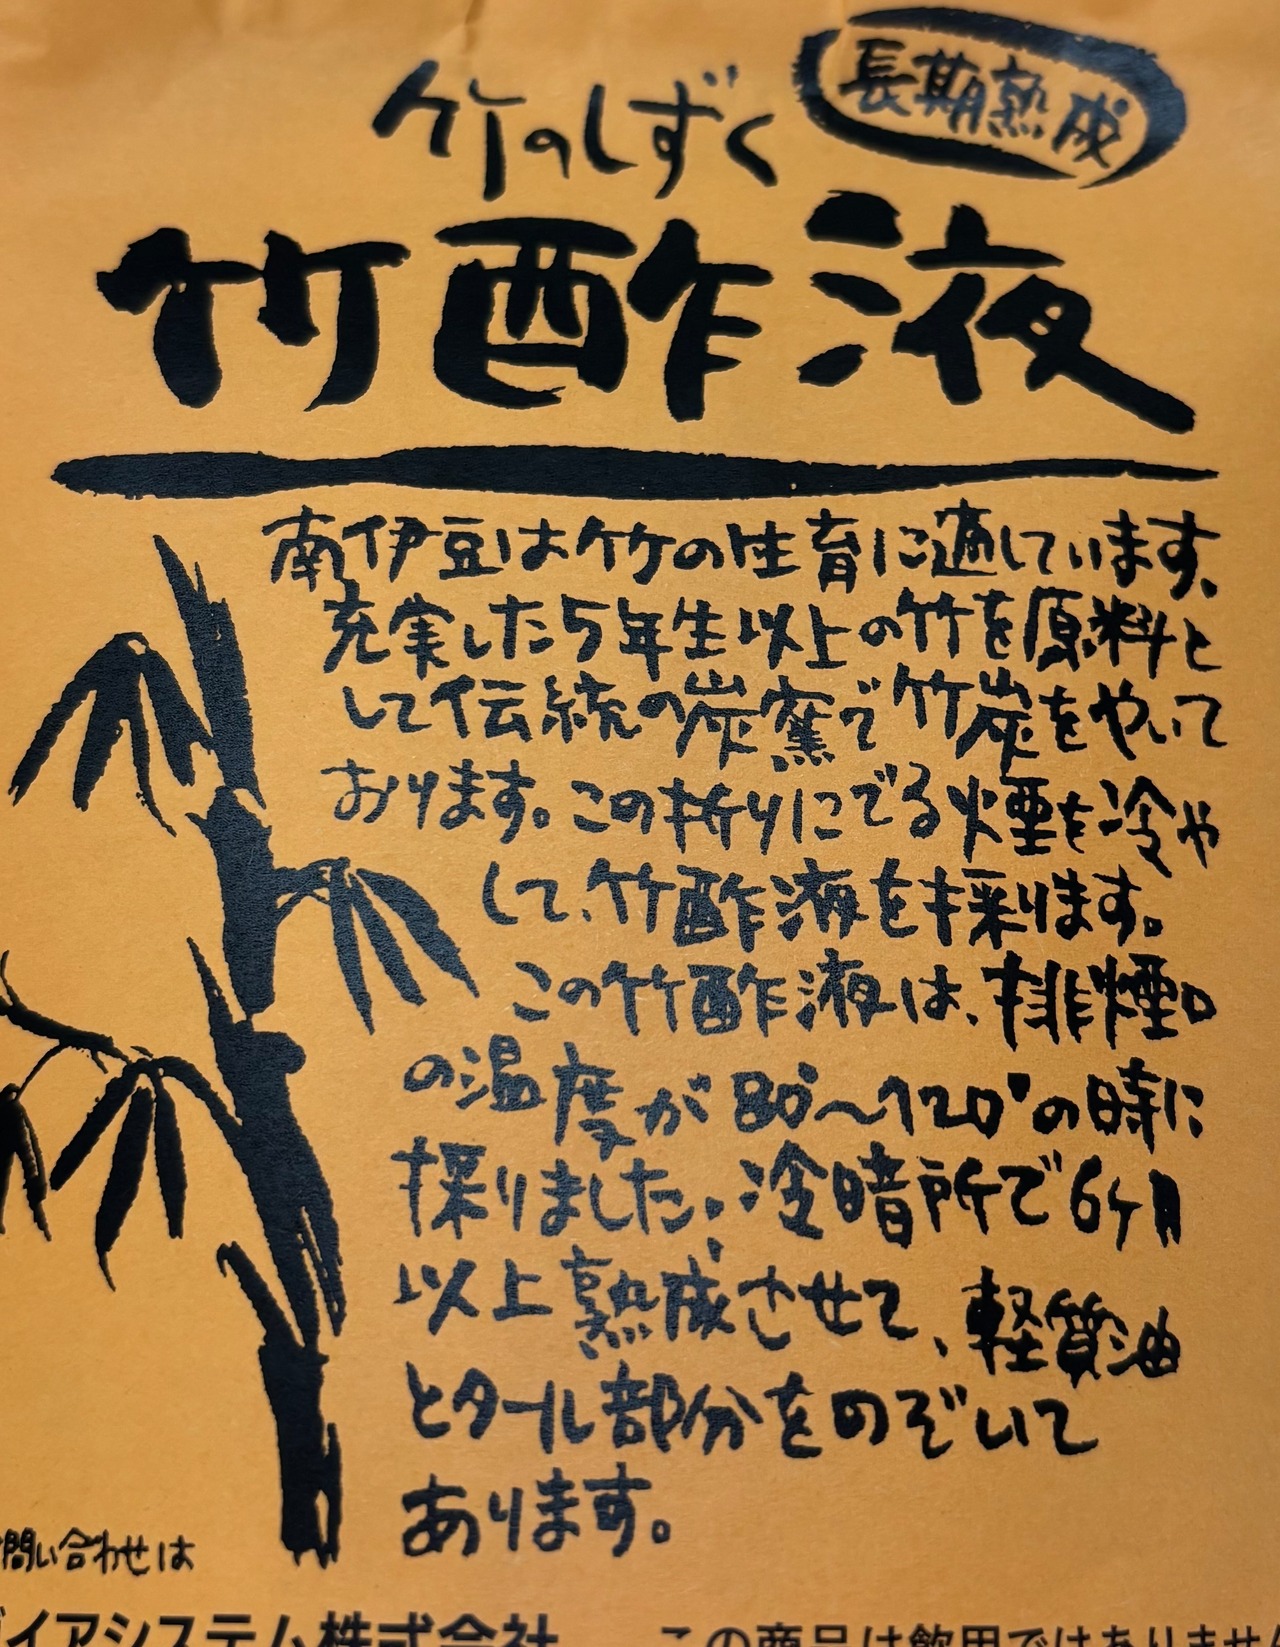 竹のしずく
長期熟成
竹酢液
南伊豆は竹の生育に適しています。
充実した5年生以上の竹を原料と
して伝統の炭窯で竹炭をやいて
おります。この折りにでる煙を冷や
して、竹酢液を採ります。
この竹酢液は、排煙口
の温度が80°〜120°の時に
採りました。冷暗所で6ヶ月
以上熟成させて、軽質油
とタール部分をのぞいて
あります。
問い合わせは
イアシステム株式会社
この商品は飲用ではありません